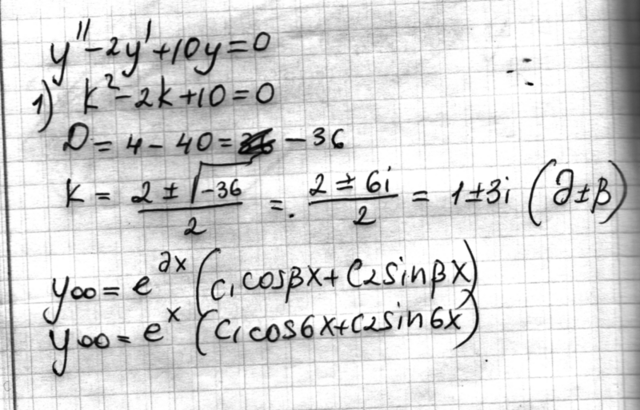 y'' - 2y' + 10y = 0
1) k² - 2k + 10 = 0
D = 4 - 40 = - 36
K = (2 ± √-36)/2 = (2 ± 6i)/2 = 1 ± 3i (∂ ± β)
yoo = e^∂x (C₁ cosβx + C₂ sinβx)
yoo = e^x (C₁ cos6x + C₂ sin6x)